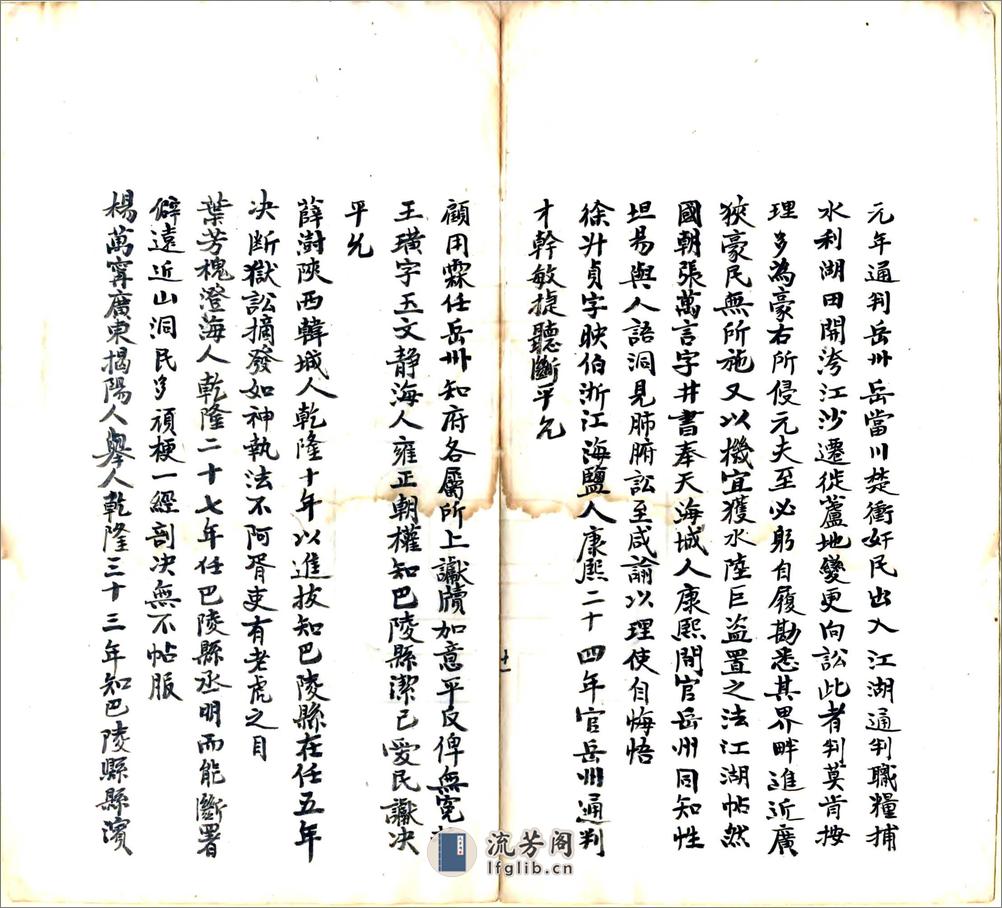 元年通判岳州岳當川楚衝奸民出入江湖通判職糧捕
水利湖田開洿江沙遷徙蘆地變更向訟此者判莫肯按
理多為豪右所侵元夫至必躬自履勘悉其界畔進近廣
狹豪民無所施又以機宜獲水陸巨盜置之法江湖帖然
國朝張萬言字井書奉天海城人康熙間官岳州同知性
坦易與人語洞見肺腑訟至咸諭以理使自悔悟
徐升貞字映伯浙江海鹽人康熙二十四年官岳州通判
才幹敏捷聽斷平允
十一
顧用霖任岳州知府各屬所上讞牘如意平反俾無冤
王璜字玉文靜海人雍正朝權知巴陵縣潔己愛民讞決
平允
薛澍陝西韓城人乾隆十年以進拔知巴陵縣在任五年
決斷獄訟摘發如神執法不阿胥吏有老虎之目
葉芳槐澄海人乾隆二十七年任巴陵縣丞明而能斷署
僻遠近山洞民多頑梗一經剖決無不帖服
楊萬寧廣東揭陽人舉人乾隆三十三年知巴陵縣縣濱
流芳阁
lfglib.cn